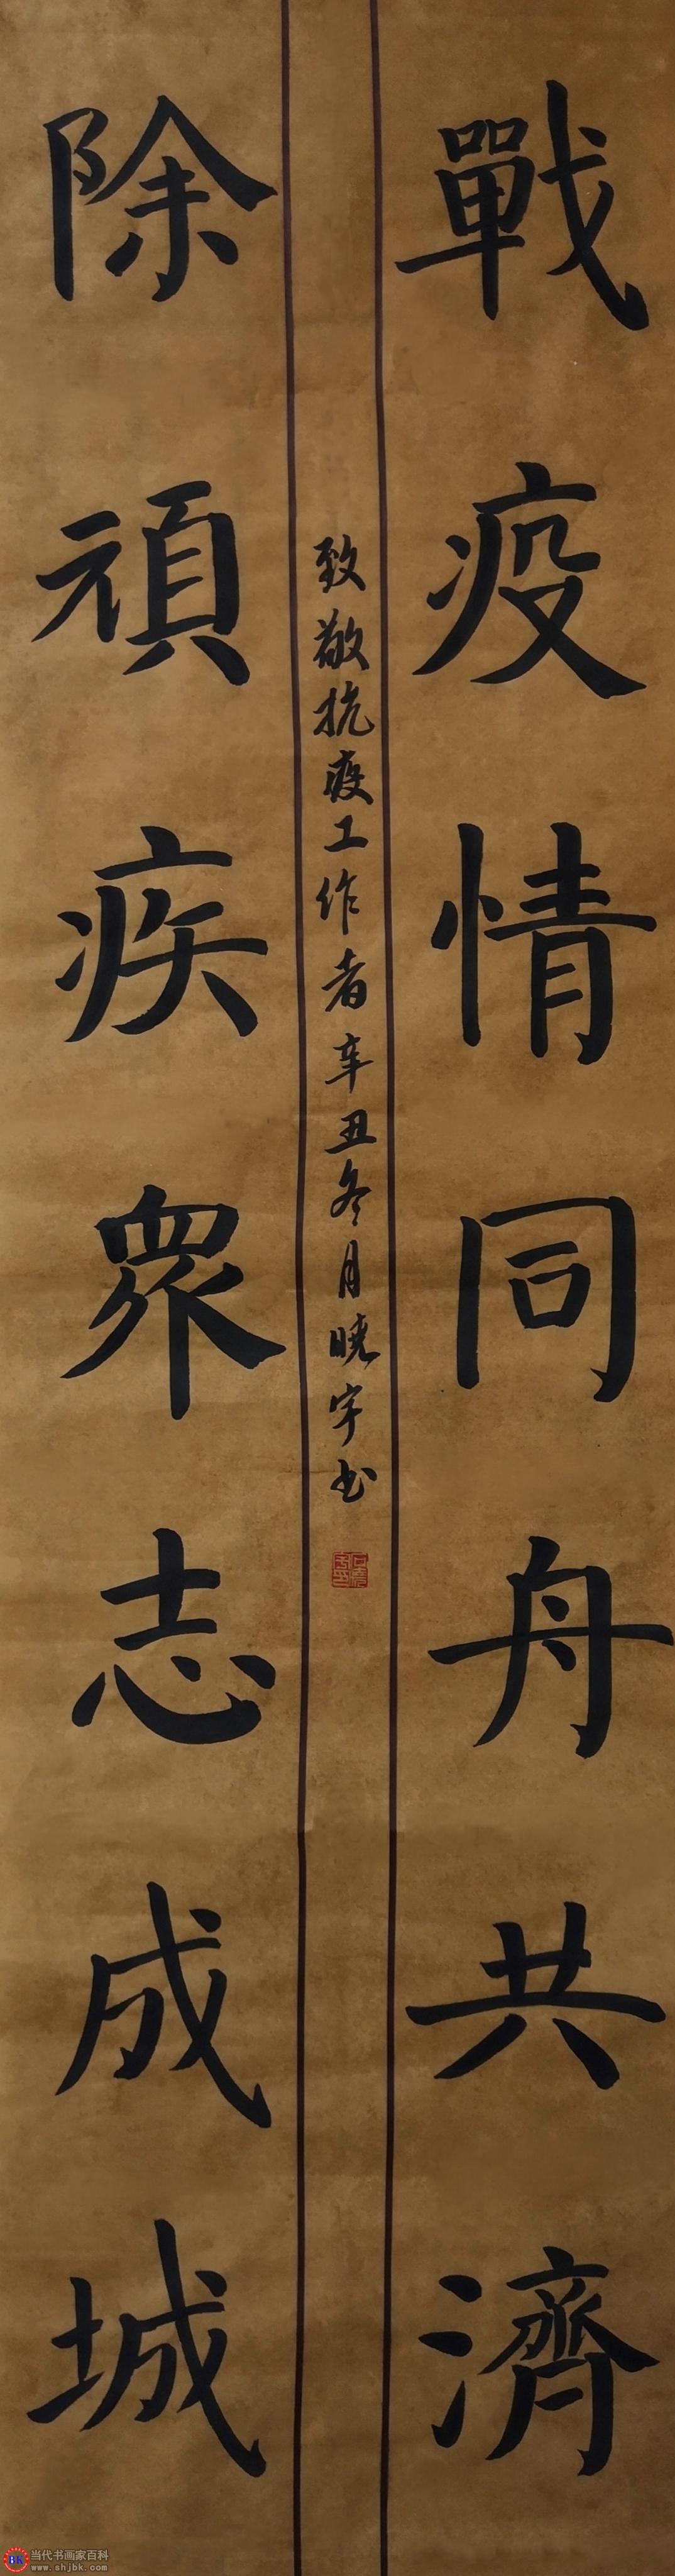 戰疫情同舟共濟
致敬抗疫工作者辛丑冬月曉宇书
除頑疾眾志成城
当代书画家百科
www.shjbk.com